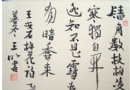 墙角数枝梅凌
寒独自开遥
知不是雪为
有暗香来
王安石梅花诗